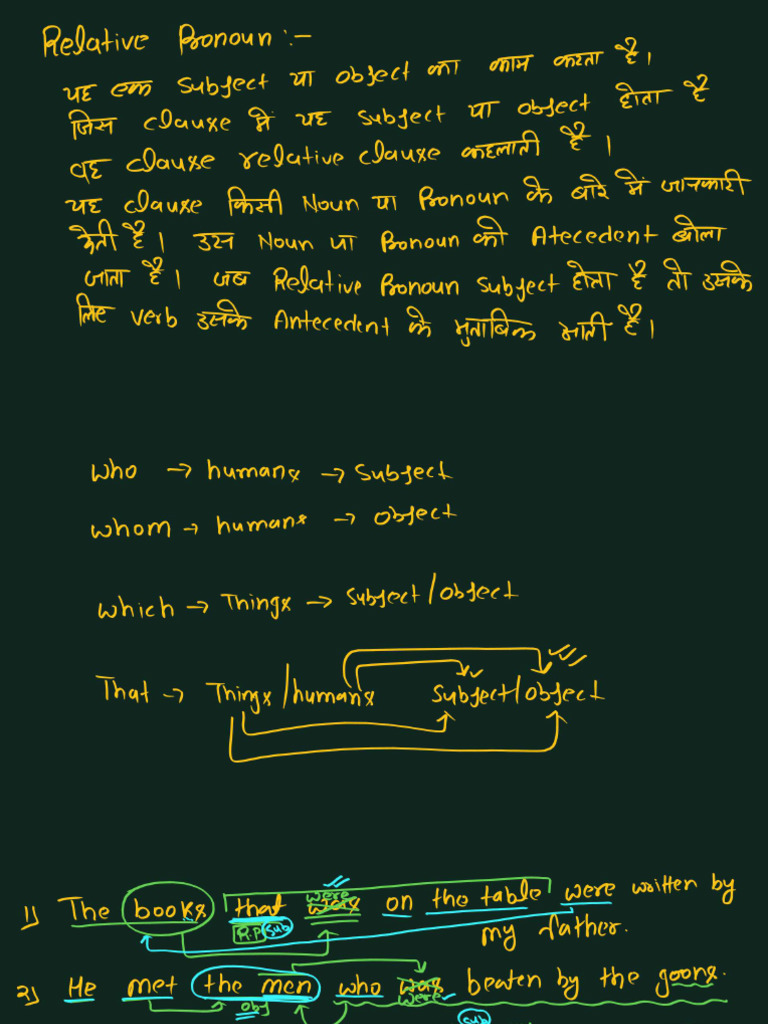 Relative Pronoun :-
यह एक subject या object का काम करता है।
जिस clause में यह subject या object होता है
वह clause relative clause कहलाती है।
यह clause किसी Noun या Pronoun के बारे में जानकारी
देती है। उस Noun या Pronoun को Atecedent बोला
जाता है। जब Relative Pronoun subject होता है तो उसके
लिए verb उसके Antecedent के मुताबिक आती है।
who → humans → subject
whom → humans → object
which → Things → subject/object
That → Things/humans subject/object
were
1) The books that was on the table were written by
R.P sub
my father.
2) He met the men who was beaten by the goons.
obj were
sub